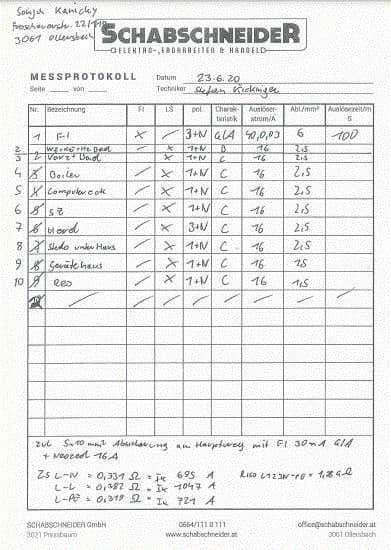 Sonja Kanicky
22/1/10
3061 Ollersbach
SCHABSCHNEIDER
ELEKTRO-, ERDARBEITEN & HANDEL
MESSPROTOKOLL
Datum 23.6.20
Seite von
Techniker Stefan
Nr. Bezeichnung FI LS pol. Charakteristik Auslöserstrom/A Abl./mm² Auslösezeit/mS
1 FI X / 3+N G/A 40,0,03 6 100
2 Bad / X 1+N B 16 2,5
3 Vorz+Bad X 1+N C 16 2,5
4 Boiler / X 1+N C 16 2,5
5 Computereck / X 1+N C 16 2,5
6 SZ / X 1+N C 16 2,5
7 Herd / X 3+N C 16 2,5
8 Stedo unter Haus / X 1+N C 16 2,5
9 Gerätehaus / X 1+N C 16 1,5
10 Res / X 1+N C 16 1,5
Zul 5x10mm² Absicherung am Hauptverz mit FI 30mA G/A
+ Neozed 16A
Zs L-N = 0,331 Ω = Ik 695 A
L-L = 0,382 Ω = Ik 1047 A
L-PE = 0,319 Ω = Ik 721 A
Riso L123N-PE = GΩ
SCHABSCHNEIDER GmbH
0664/111 8 111
office@schabschneider.at
3021 Pressbaum
www.schabschneider.at
3061 Ollersbach